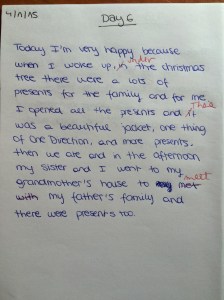 4/11/15
Day 6
Today I'm very happy because
when I woke up, in under the christmas
tree there were a lots of
presents for the family and for me.
I opened all the presents and it There
was a beautiful jacket, one thing
of One Direction, and more presents.
then we are and in the afternoon
my sister and I went to my
grandmother's house to meet
with my father's family and
there were presents too.